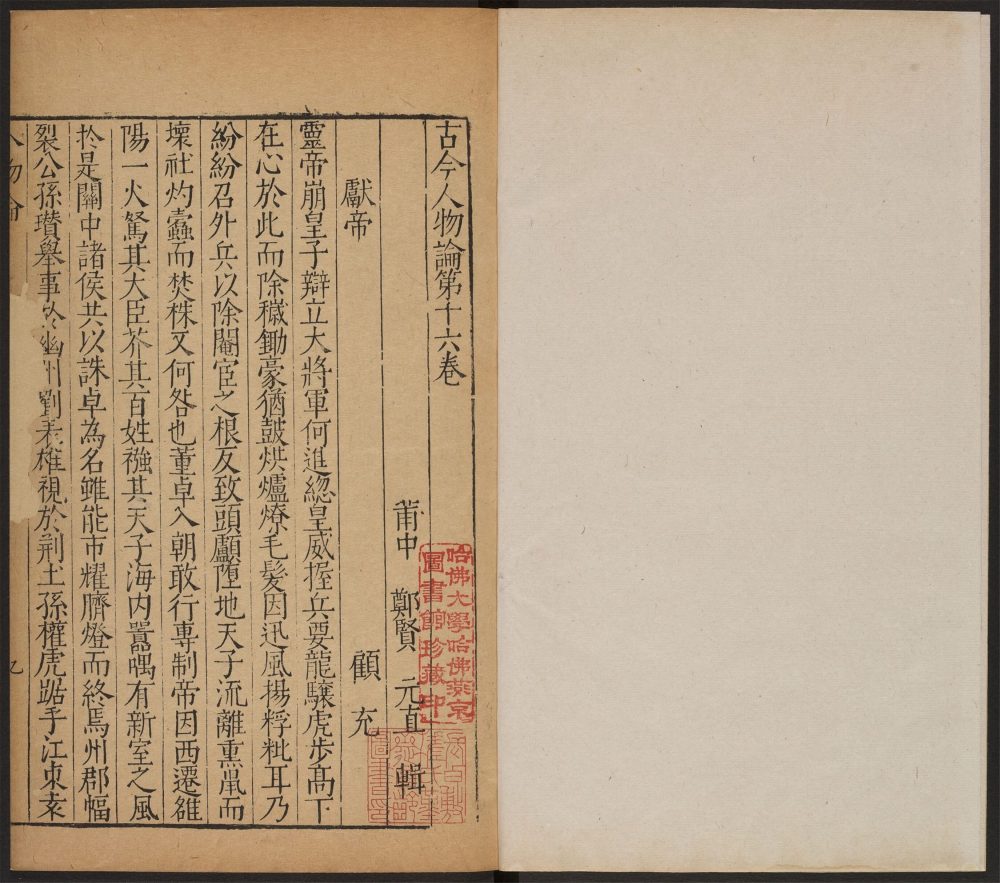 古今人物論第十六卷
莆中 鄭賢 元直 輯
獻帝
顧充
靈帝崩皇子辯立大將軍何進總皇威握兵要龍驤虎步高下
在心於此而除穢鋤豪猶鼓烘爐燎毛髮因迅風揚粰粃耳乃
紛紛召外兵以除閹宦之根反致頭顱墮地天子流離熏鼠而
壞社灼蠹而焚株又何咎也董卓入朝敢行專制帝因西遷雒
陽一火駑其大臣芥其百姓襁其天子海内嚣喁有新室之風
扵是關中諸侯共以誅卓為名雖能市耀臍燈而終焉州郡幅
裂公孫瓚舉事於幽州劉表雄視於荆土孫權虎踞乎江東袁
人物論
九
哈佛大學哈佛燕京
圖書館珍藏印